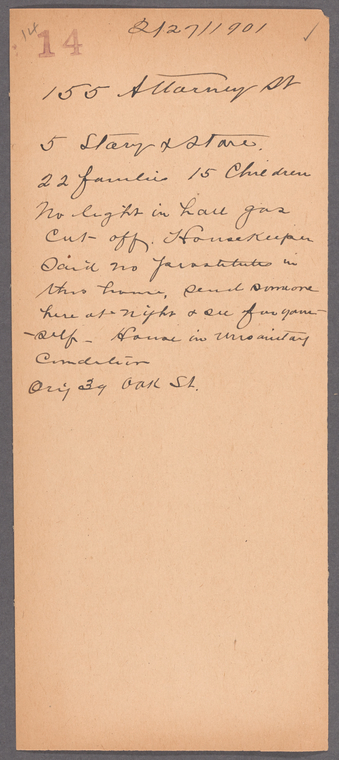 14
14
2/27/1901
155 Attorney St
5 Story & Store.
22 families 15 Children
No light in hall gas
Cut off. Housekeeper
Said no Prostitutes in
this house, send someone
here at night & see for your-
-self - House in unsanitary
Condition
39 Oak St.